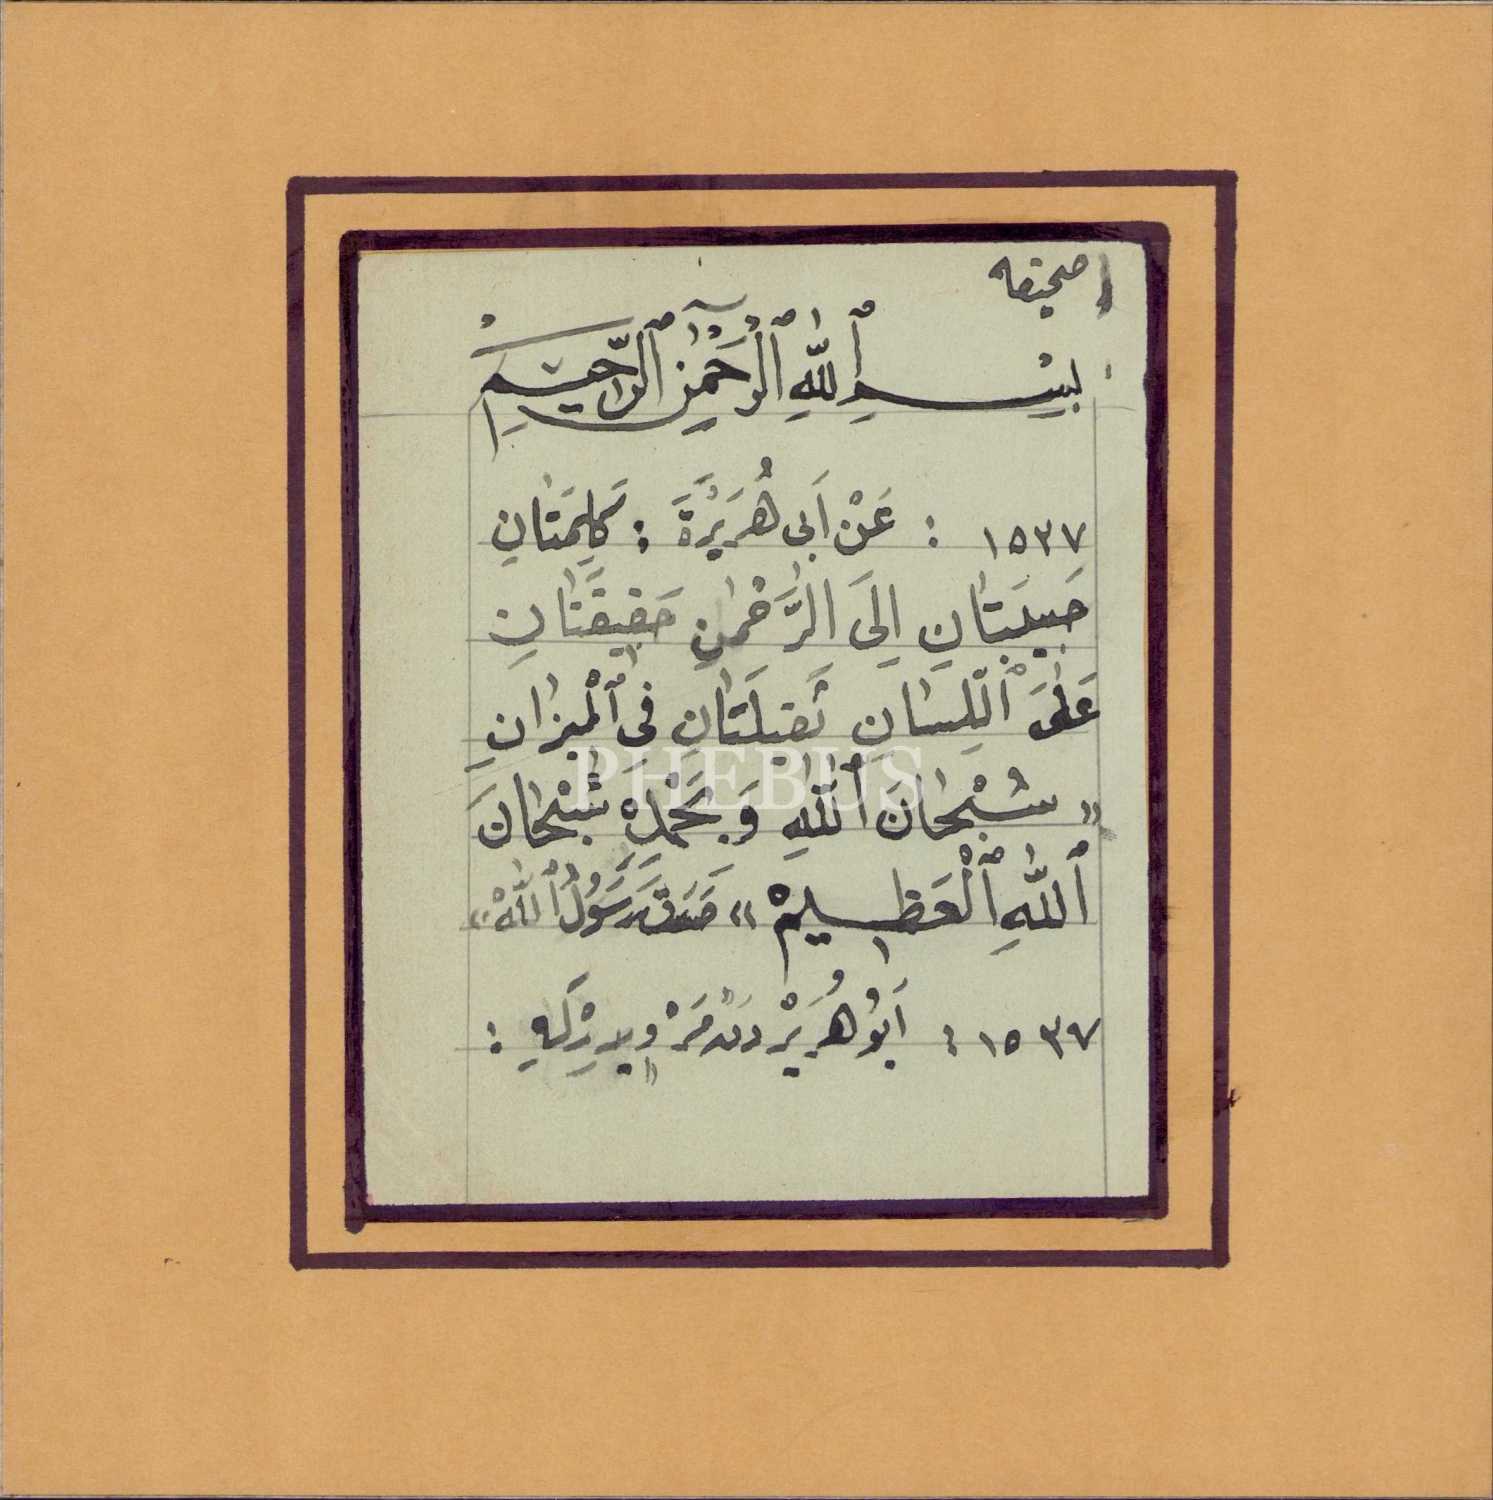 صحيفه ١
بِسْمِ ٱللّٰهِ ٱلرَّحْمٰنِ ٱلرَّحِيمِ
١٥٣٧ : عَنْ اَبى هُرَيْرَةَ : كَلِمَتٰانِ
حَبيبَتٰانِ اِلَى الرَّحْمٰنِ خَفيفَتٰانِ
عَلَى ٱللِّسٰانِ ثَقيلَتٰانِ فِى ٱلْميزٰانِ
« سُبْحٰانَ ٱللّٰهِ وَ بِحَمْدِهْ سُبْحٰانَ
ٱللّٰهِ ٱلْعَظِيمْ » صَدَقَ رَسُولُ ٱللّٰهْ »
١٥٣٧ : اَبُو هُرَيْرَ دَنْ مَرْوِيدِرْكِهِ :
PHEBUS